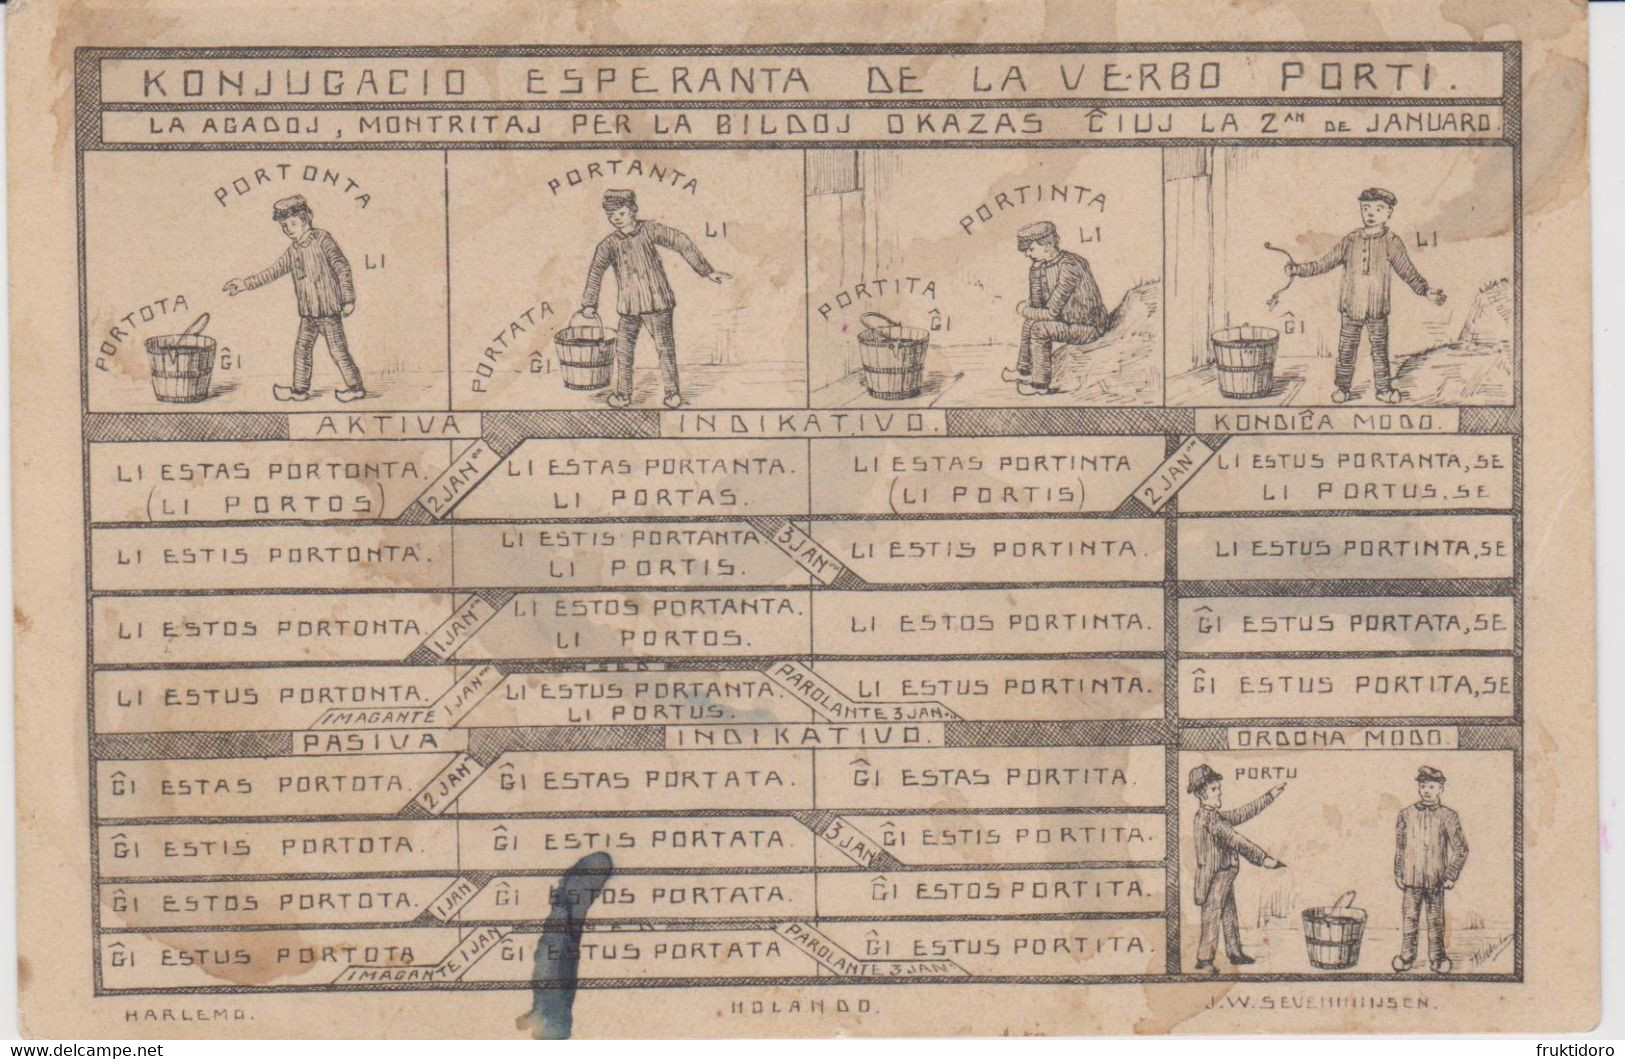 KONJUGACIO ESPERANTA DE LA VERBO PORTI.
LA AGADOJ, MONTRITAJ PER LA BILDOJ OKAZAS ĈIUJ LA 2AN DE JANUARO.
PORTONTA
LI
PORTOTA
ĜI
PORTANTA
LI
PORTATA
ĜI
PORTINTA
LI
PORTITA
ĜI
LI
ĜI
AKTIVA INDIKATIVO. KONDIĈA MODO.
LI ESTAS PORTONTA.
(LI PORTOS)
2 JAN
LI ESTAS PORTANTA.
LI PORTAS.
LI ESTAS PORTINTA
(LI PORTIS)
2 JAN
LI ESTUS PORTANTA, SE
LI PORTUS, SE
LI ESTIS PORTONTA.
LI ESTIS PORTANTA.
LI PORTIS.
3 JAN
LI ESTIS PORTINTA.
LI ESTUS PORTINTA, SE
LI ESTOS PORTONTA
1 JAN
LI ESTOS PORTANTA.
LI PORTOS.
LI ESTOS PORTINTA.
ĜI ESTUS PORTATA, SE
LI ESTUS PORTONTA.
IMAGANTE 1 JAN
SED
LI ESTUS PORTANTA.
LI PORTUS.
PAROLANTE 3 JAN
LI ESTUS PORTINTA.
ĜI ESTUS PORTITA, SE
PASIVA INDIKATIVO. ORDONA MODO.
ĜI ESTAS PORTOTA.
2 JAN
ĜI ESTAS PORTATA.
ĜI ESTAS PORTITA.
PORTU
ĜI ESTIS PORTOTA.
ĜI ESTIS PORTATA.
3 JAN
ĜI ESTIS PORTITA.
ĜI ESTOS PORTOTA.
1 JAN
ĜI ESTOS PORTATA.
ĜI ESTOS PORTITA.
ĜI ESTUS PORTOTA
IMAGANTE 1 JAN
ĜI ESTUS PORTATA
PAROLANTE 3 JAN
ĜI ESTUS PORTITA.
HARLEMO. HOLANDO. J.W. SEVENHUIJSEN.
fruktidoro
delcampe.net